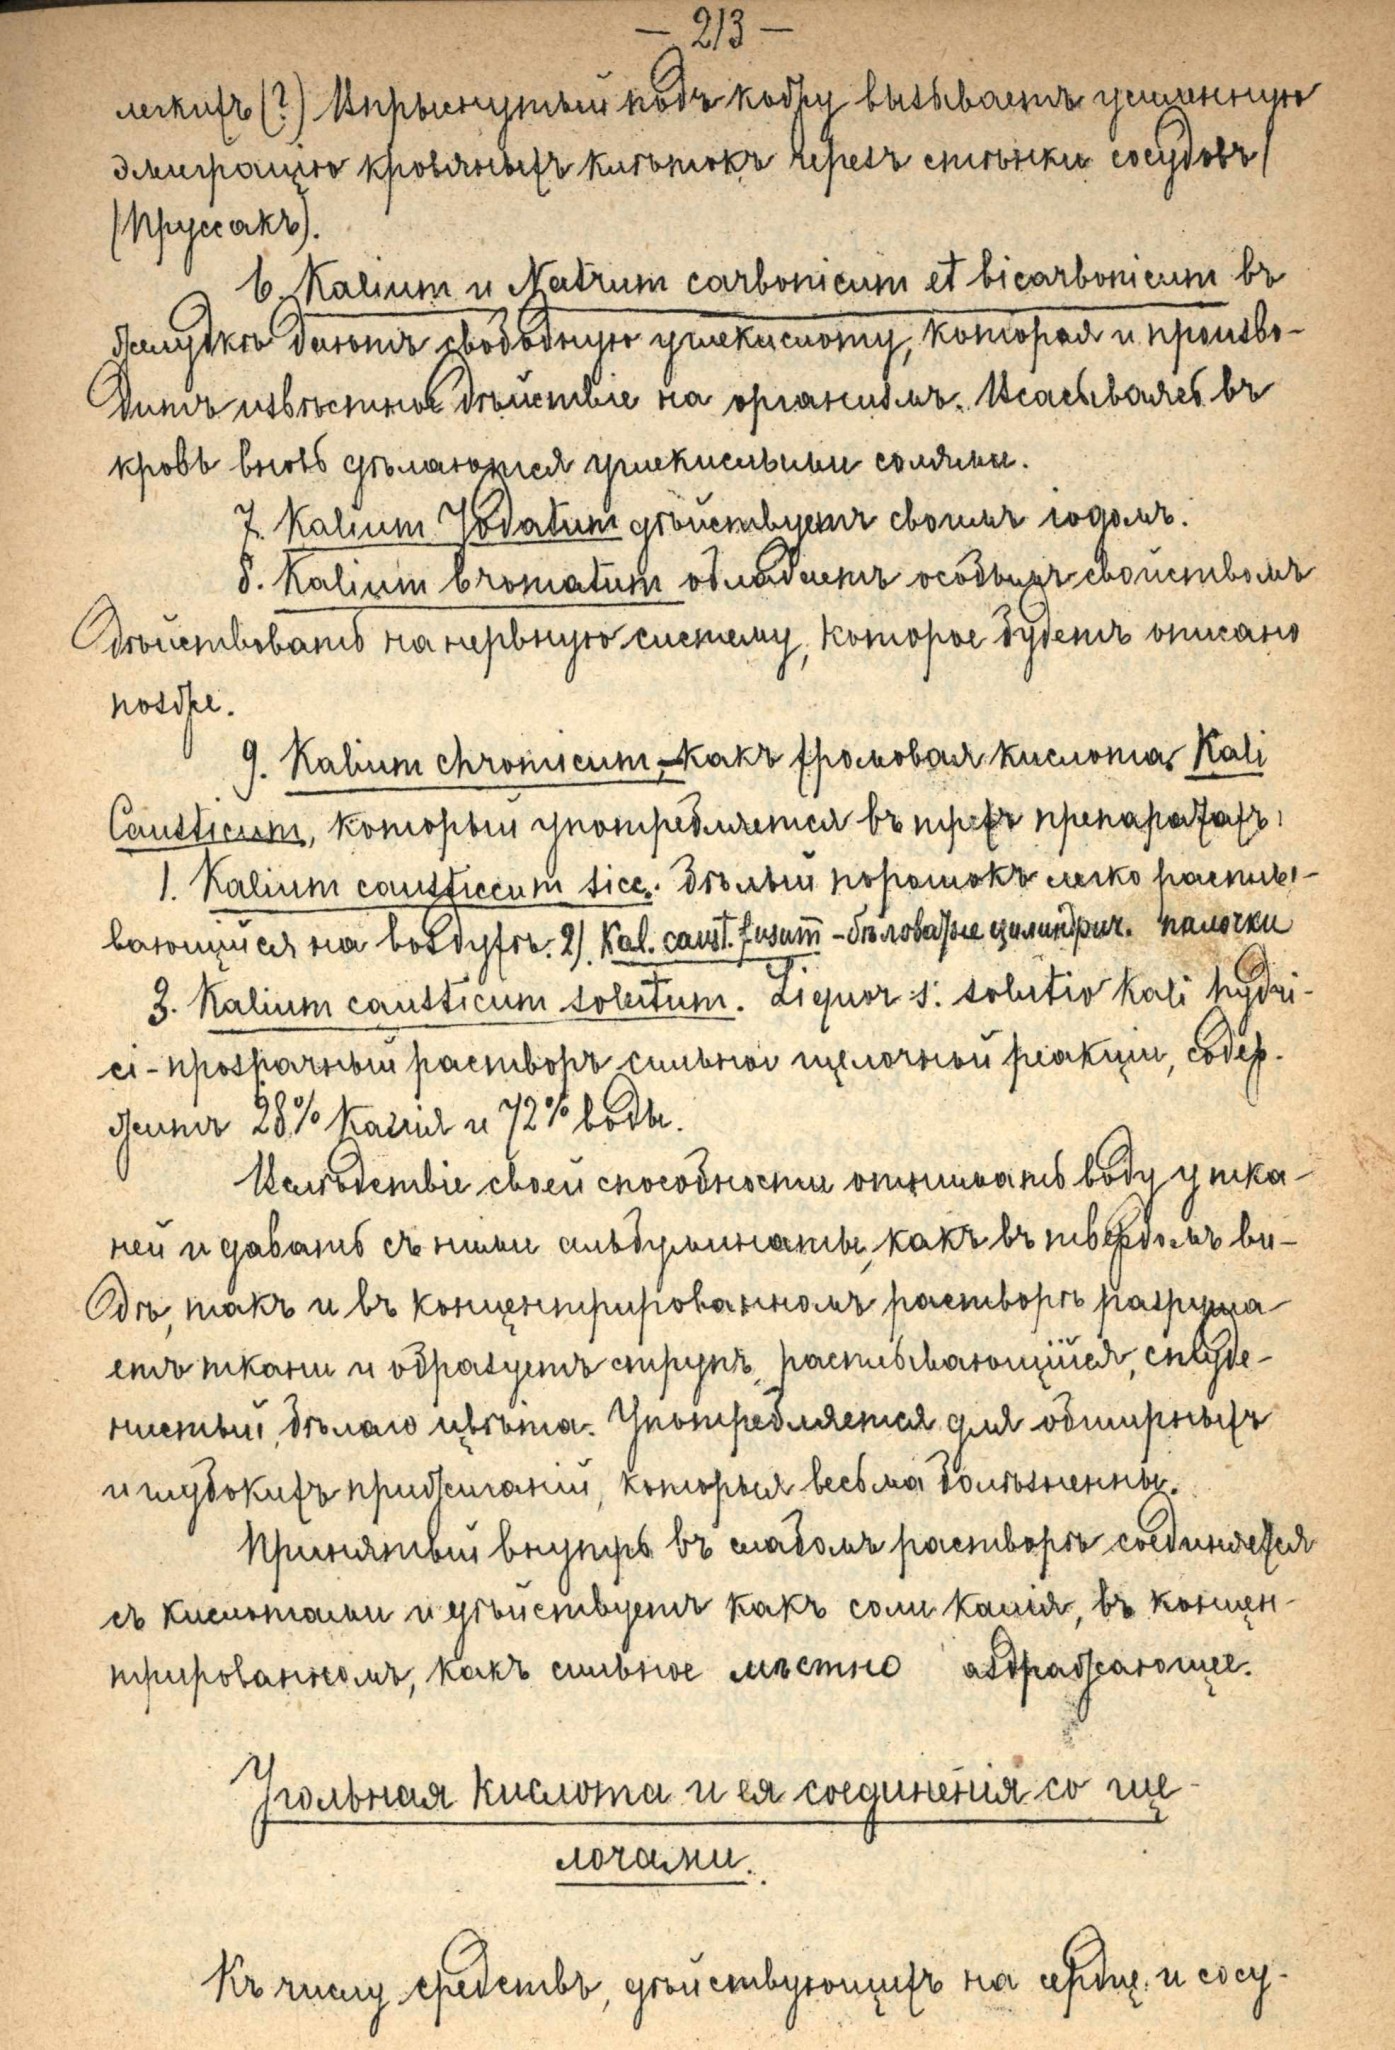 — 213 —
легкихъ (?) Впрыснутый подъ кожу вызываетъ усиленную
эмиграцію кровяныхъ клѣтокъ черезъ стѣнки сосудовъ/
(Пруссакъ).
6. Kalium и Natrum carbonicum et bicarbonicum въ
желудкѣ даютъ свободную углекислоту, которая и произво-
дитъ извѣстное дѣйствіе на организмъ. Всасываясь въ
кровь вновь дѣлаются углекислыми солями.
7. Kalium Jodatum дѣйствуетъ своимъ іодомъ.
8. Kalium bromatum обладаетъ особымъ свойствомъ
дѣйствовать на нервную систему, которое будетъ описано
позже.
9. Kalium chromicum, – какъ хромовая кислота. Kali
Causticum, который употребляется въ трехъ препаратахъ:
1. Kalium causticcum sicc. бѣлый порошокъ легко расплы-
вающійся на воздухѣ. 2). Kal. caust. fusum – бѣловатые цилиндрич. палочки
3. Kalium causticum solutum. Liquor s. solutio Kali hydri-
ci – прозрачный растворъ сильной щелочной реакціи, содер-
житъ 28% Калія и 72% воды.
Вслѣдствіе своей способности отнимать воду у тка-
ней и давать съ ними альбуминаты, какъ въ твердомъ ви-
дѣ, такъ и въ концентрированномъ растворѣ разруша-
етъ ткани и образуетъ струпъ, расплывающійся, студе-
нистый, бѣлаго цвѣта. Употребляется для обширныхъ
и глубокихъ прижиганій, которыя весьма болѣзненны.
Принятый внутрь въ слабомъ растворѣ соединяется
съ кислотами и дѣйствуетъ какъ соли калія, въ концен-
трированномъ, какъ сильное мѣстно раздражающее.
Угольная кислота и ея соединенія со ще-
лочами.
Къ числу средствъ, дѣйствующихъ на сердце и сосу-